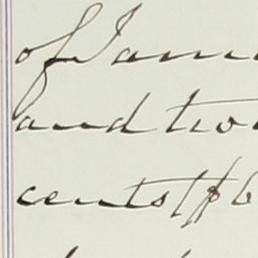 of Jam
and two
cents ($6